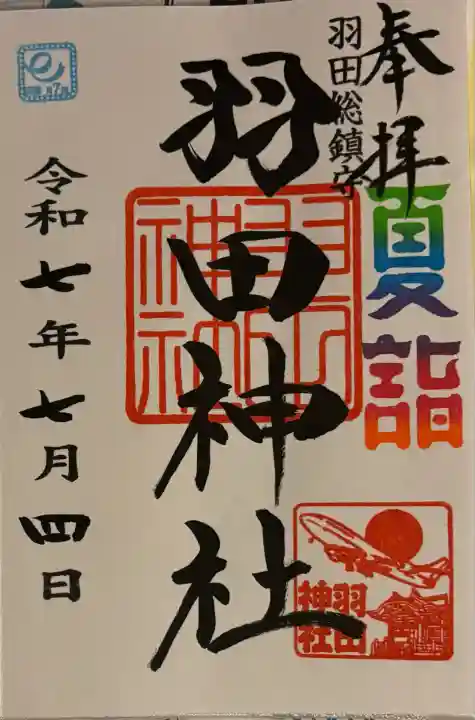 奉拝
羽田総鎮守
夏詣
羽田神社
羽田神社
羽田神社
令和七年七月四日
第7回